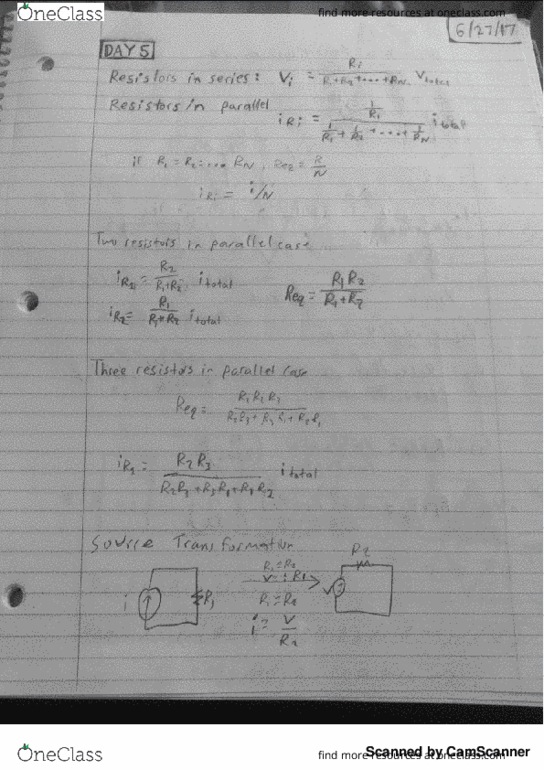 OneClass
find more resources at oneclass.com
6/27/17
DAY 5
Resistors in series: Vi = Ri / R1+R2+....+RN Vtotal
Resistors in parallel
iRi = 1/Ri / 1/R1 + 1/R2 +....+ 1/RN itotal
if R1 = R2 = .... RN, Req = R/N
iRi = i/N
Two resistors in parallel case
iR1 = R2 / R1+R2 itotal
Req = R1R2 / R1+R2
iR2 = R1 / R1+R2 itotal
Three resistors in parallel case
Req = R1R2R3 / R2R3 + R3R1 + R2R1
iR1 = R2R3 / R2R3 + R3R1 + R1R2 itotal
Source Transformation
R2
R1 = R2
V = iR1
i
R1
V
R1 = R2
i = V / R2
OneClass
find more resources at oneclass.com
Scanned by CamScanner